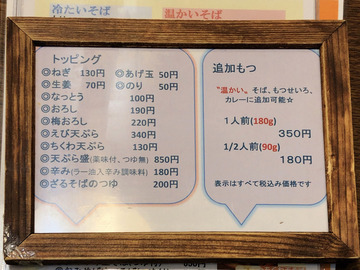 冷たいそば
温かいそば
トッピング
◎ねぎ 130円 ◎あげ玉 50円
◎生姜 70円 ◎のり 50円
◎なっとう 100円
◎おろし 190円
◎梅おろし 220円
◎えび天ぷら 340円
◎ちくわ天ぷら 130円
◎天ぷら盛(薬味付、つゆ無) 850円
◎辛み(ラー油入辛み調味料) 180円
◎ざるそばのつゆ 200円
追加もつ
"温かい"そば、もつせいろ、
カレーに追加可能☆
1人前(180g)
350円
1/2人前(90g)
180円
表示はすべて税込み価格です